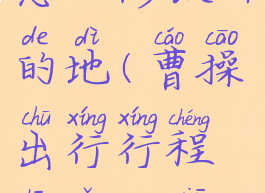 de dì cáo cāo
的地(曹操
chū xíng xíng chéng
出行行程